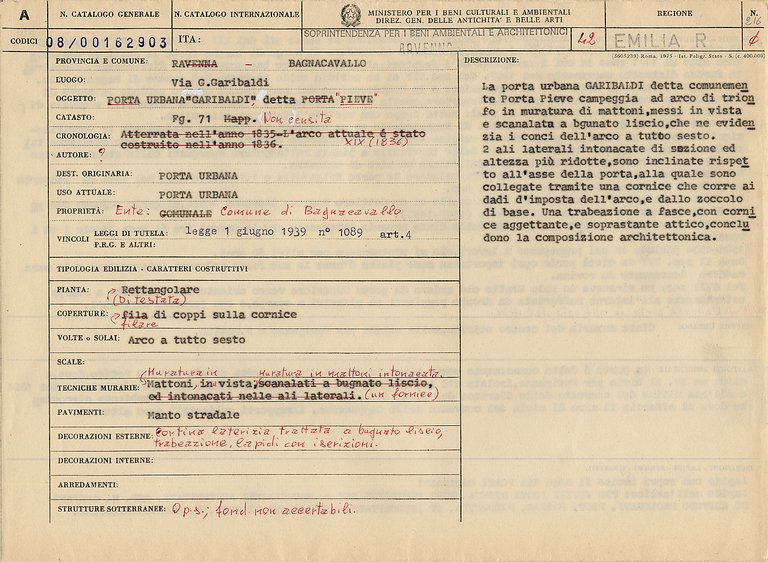 A
N. CATALOGO GENERALE
N. CATALOGO INTERNAZIONALE
MINISTERO PER I BENI CULTURALI E AMBIENTALI
DIREZ. GEN. DELLE ANTICHITA' E BELLE ARTI
REGIONE
N.
216
CODICI
08/00162903
ITA:
SOPRINTENDENZA PER I BENI AMBIENTALI E ARCHITETTONICI
RAVENNA
42
EMILIA R
(5605239) Roma, 1975 - Ist. Poligr. Stato - S. (c. 400.000)
PROVINCIA E COMUNE: RAVENNA - BAGNACAVALLO
LUOGO: Via G.Garibaldi
OGGETTO: PORTA URBANA"GARIBALDI" detta PORTA "PIEVE"
CATASTO: Fg. 71 Mapp. Non censita
CRONOLOGIA: Atterrata nell'anno 1835-L'arco attuale é stato
costruito nell'anno 1836. XIX (1836)
AUTORE: ?
DEST. ORIGINARIA: PORTA URBANA
USO ATTUALE: PORTA URBANA
PROPRIETÀ: Ente: COMUNALE Comune di Bagnacavallo
VINCOLI
LEGGI DI TUTELA: legge 1 giugno 1939 n° 1089 art.4
P.R.G. E ALTRI:
TIPOLOGIA EDILIZIA - CARATTERI COSTRUTTIVI
PIANTA: Rettangolare
(Di testata)
COPERTURE: fila di coppi sulla cornice
filare
VOLTE o SOLAI: Arco a tutto sesto
SCALE:
Muratura in muratura in mattoni intonacata.
TECNICHE MURARIE: Mattoni, in vista, scanalati a bugnato liscio,
ed intonacati nelle ali laterali. (un fornice)
PAVIMENTI: Manto stradale
DECORAZIONI ESTERNE: Cortina laterizia trattata a bugnato liscio,
trabeazione, lapidi con iscrizioni.
DECORAZIONI INTERNE:
ARREDAMENTI:
STRUTTURE SOTTERRANEE: O.p.s.; fond. non accertabili.
DESCRIZIONE:
La porta urbana GARIBALDI detta comunemen
te Porta Pieve campeggia ad arco di trion
fo in muratura di mattoni,messi in vista
e scanalata a bgunato liscio,che ne eviden
zia i conci dell'arco a tutto sesto.
2 ali laterali intonacate di sezione ed
altezza più ridotte,sono inclinate rispet
to all'asse della porta,alla quale sono
collegate tramite una cornice che corre ai
dadi d'imposta dell'arco,e dallo zoccolo
di base. Una trabeazione a fasce,con corni
ce aggettante,e soprastante attico,conclu
dono la composizione architettonica.